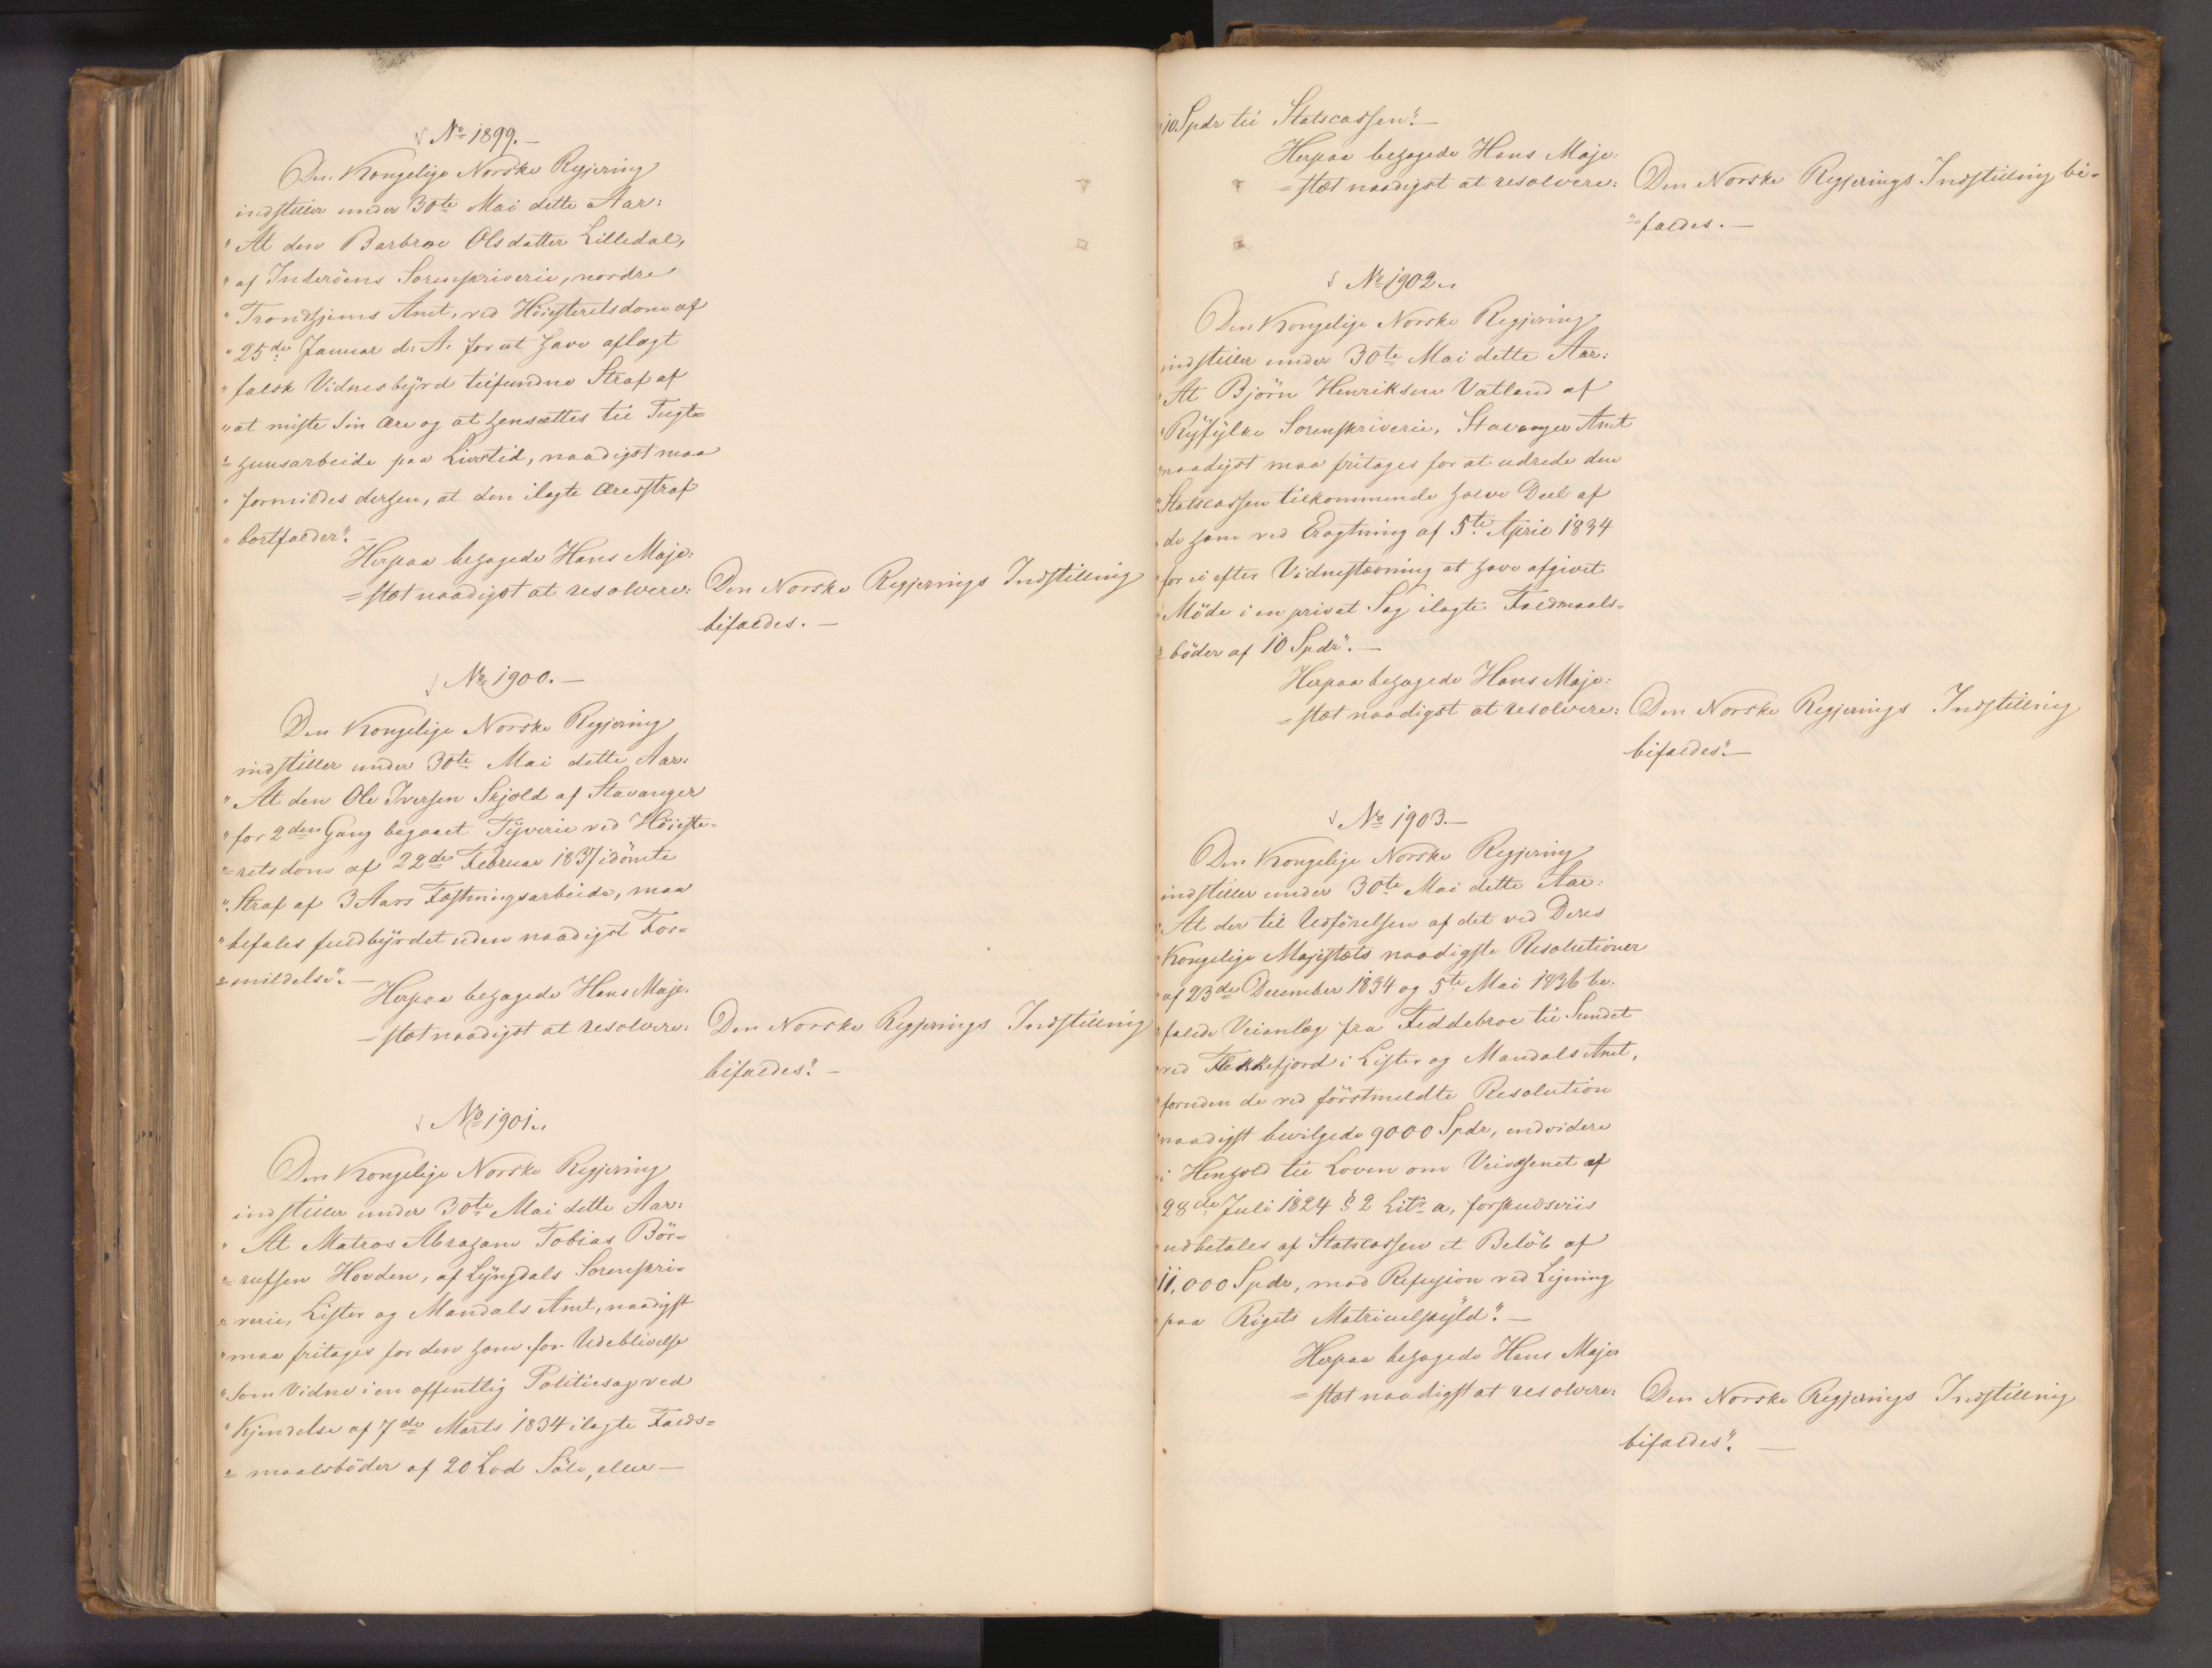 № 1899.—
Den Kongelige Norske Regjering
indstiller under 30te Mai dette Aar:
"At den Barbroe Olsdatter Lilledal,
"af Inderöens Sorenskriverie, nordre
"Trondhjems Amt, ved Höiesteretsdom af
"25de Januar d: A. for at have aflagt
"falsk Vidnesbyrd tilfundne Straf af
"at miste sin Ære og at hensættes til Tugt=
"=huusarbeide paa Livstid, naadigst maa
"formildes derhen, at den ilagte Æresstraf
"bortfalder".—
Herpaa behagede Hans Maje:
=stæt naadigst at resolvere: Den Norske Regjerings Indstilling
bifaldes.—
№ 1900.—
Den Kongelige Norske Regjering
indstiller under 30te Mai dette Aar:
"At den Ole Iversen Skjold af Stavanger
"for 2den Gang begaaet Tyverie ved Höieste=
"=retsdom af 22de Februar 1837 idömte
"Straf af 3 Aars Fæstningsarbeide, maa
"befales fuldbyrdet uden naadigst For=
"=mildelse".—
Herpaa behagede Hans Maje:
=stæt naadigst at resolvere: Den Norske Regjerings Indstilling
bifaldes".—
№ 1901.
Den Kongelige Norske Regjering
indstiller under 30te Mai dette Aar:
"At Matros Abraham Tobias Bör=
"=rufsen Hovden, af Lyngdals Sorenskri=
"=verie, Lister og Mandals Amt, naadigst
"maa fritages for den ham for Udeblivelse
"som Vidne i en offentlig Politiesag ved
"Kjendelse af 7de Marts 1834 ilagte Falds=
"=maalsböder af 20 Lod Sölv, eller—
"10 Spdr til Statscassen".—
Herpaa behagede Hans Maje:
=stæt naadigst at resolvere: Den Norske Regjerings Indstilling bi=
"=faldes.—
№ 1902.
Den Kongelige Norske Regjering
indstiller under 30te Mai dette Aar:
"At Björn Henriksen Vatland af
"Ryfylke Sorenskriverie, Stavanger Amt
"naadigst maa fritages for at udrede den
"Statscassen tilkommende halve Deel af
"de ham ved Eragtning af 5te April 1834
"for ei efter Vidnestævning at have afgivet
"Möde i en privat Sag ilagte Faldmaals=
"=böder af 10 Spdr".—
Herpaa behagede Hans Maje:
=stæt naadigst at resolvere: Den Norske Regjerings Indstilling
bifaldes".—
№ 1903.—
Den Kongelige Norske Regjering
indstiller under 30te Mai dette Aar:
"At der til Udförelsen af det ved Deres
"Kongelige Majestæts naadigste Resolutioner
"af 23de December 1834 og 5te Mai 1836 be:
"falede Veianlæg fra Feddebroe til Sundet
"ved Flekkefjord i Lister og Mandals Amt,
"foruden de ved förstmeldte Resolution
"naadigst bevilgede 9000 Spdr, endvidere
"i Henhold til Loven om Veivæsenet af
"28de Juli 1824 § 2 Litr a, forskudsviis
"udbetales af Statscassen et Belöb af
"11,000 Spdr, mod Refusion ved Ligning
"paa Rigets Matriculskyld".—
Herpaa behagede Hans Maje=
=stæt naadigst at resolvere: Den Norske Regjerings Indstilling
bifaldes".—